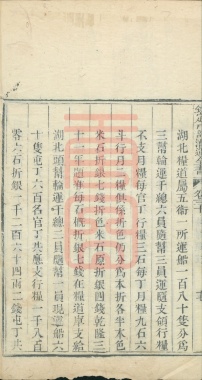 湖北糧道屬五衞一所運船一百八十隻分爲
三幫輪運千總六員隨幫三員運隨支領行糧
不支月糧每官丁行糧三石每丁月糧九石六
斗行月二糧俱係折色仍分爲本折各半本色
米石折銀七錢折色米石原折銀四錢乾隆三
十一年題准每石概折銀七錢在糧道庫支給
湖北頭幫輪運千總二員隨幫一員現運船六
十隻屯丁六百名官丁共應支行糧一千八百
零六石折銀一千二百六十四兩二錢屯丁共